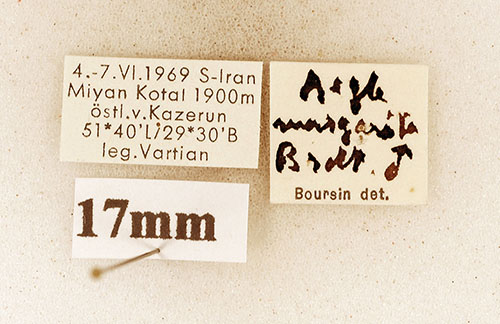 4.-7.VI.1969 S-Iran
Miyan Kotal 1900m
östl.v.Kazerun
51°40'L/29°30'B
leg.Vartian
Aegle
margarita
Brdt. ♂
Boursin det.
17mm